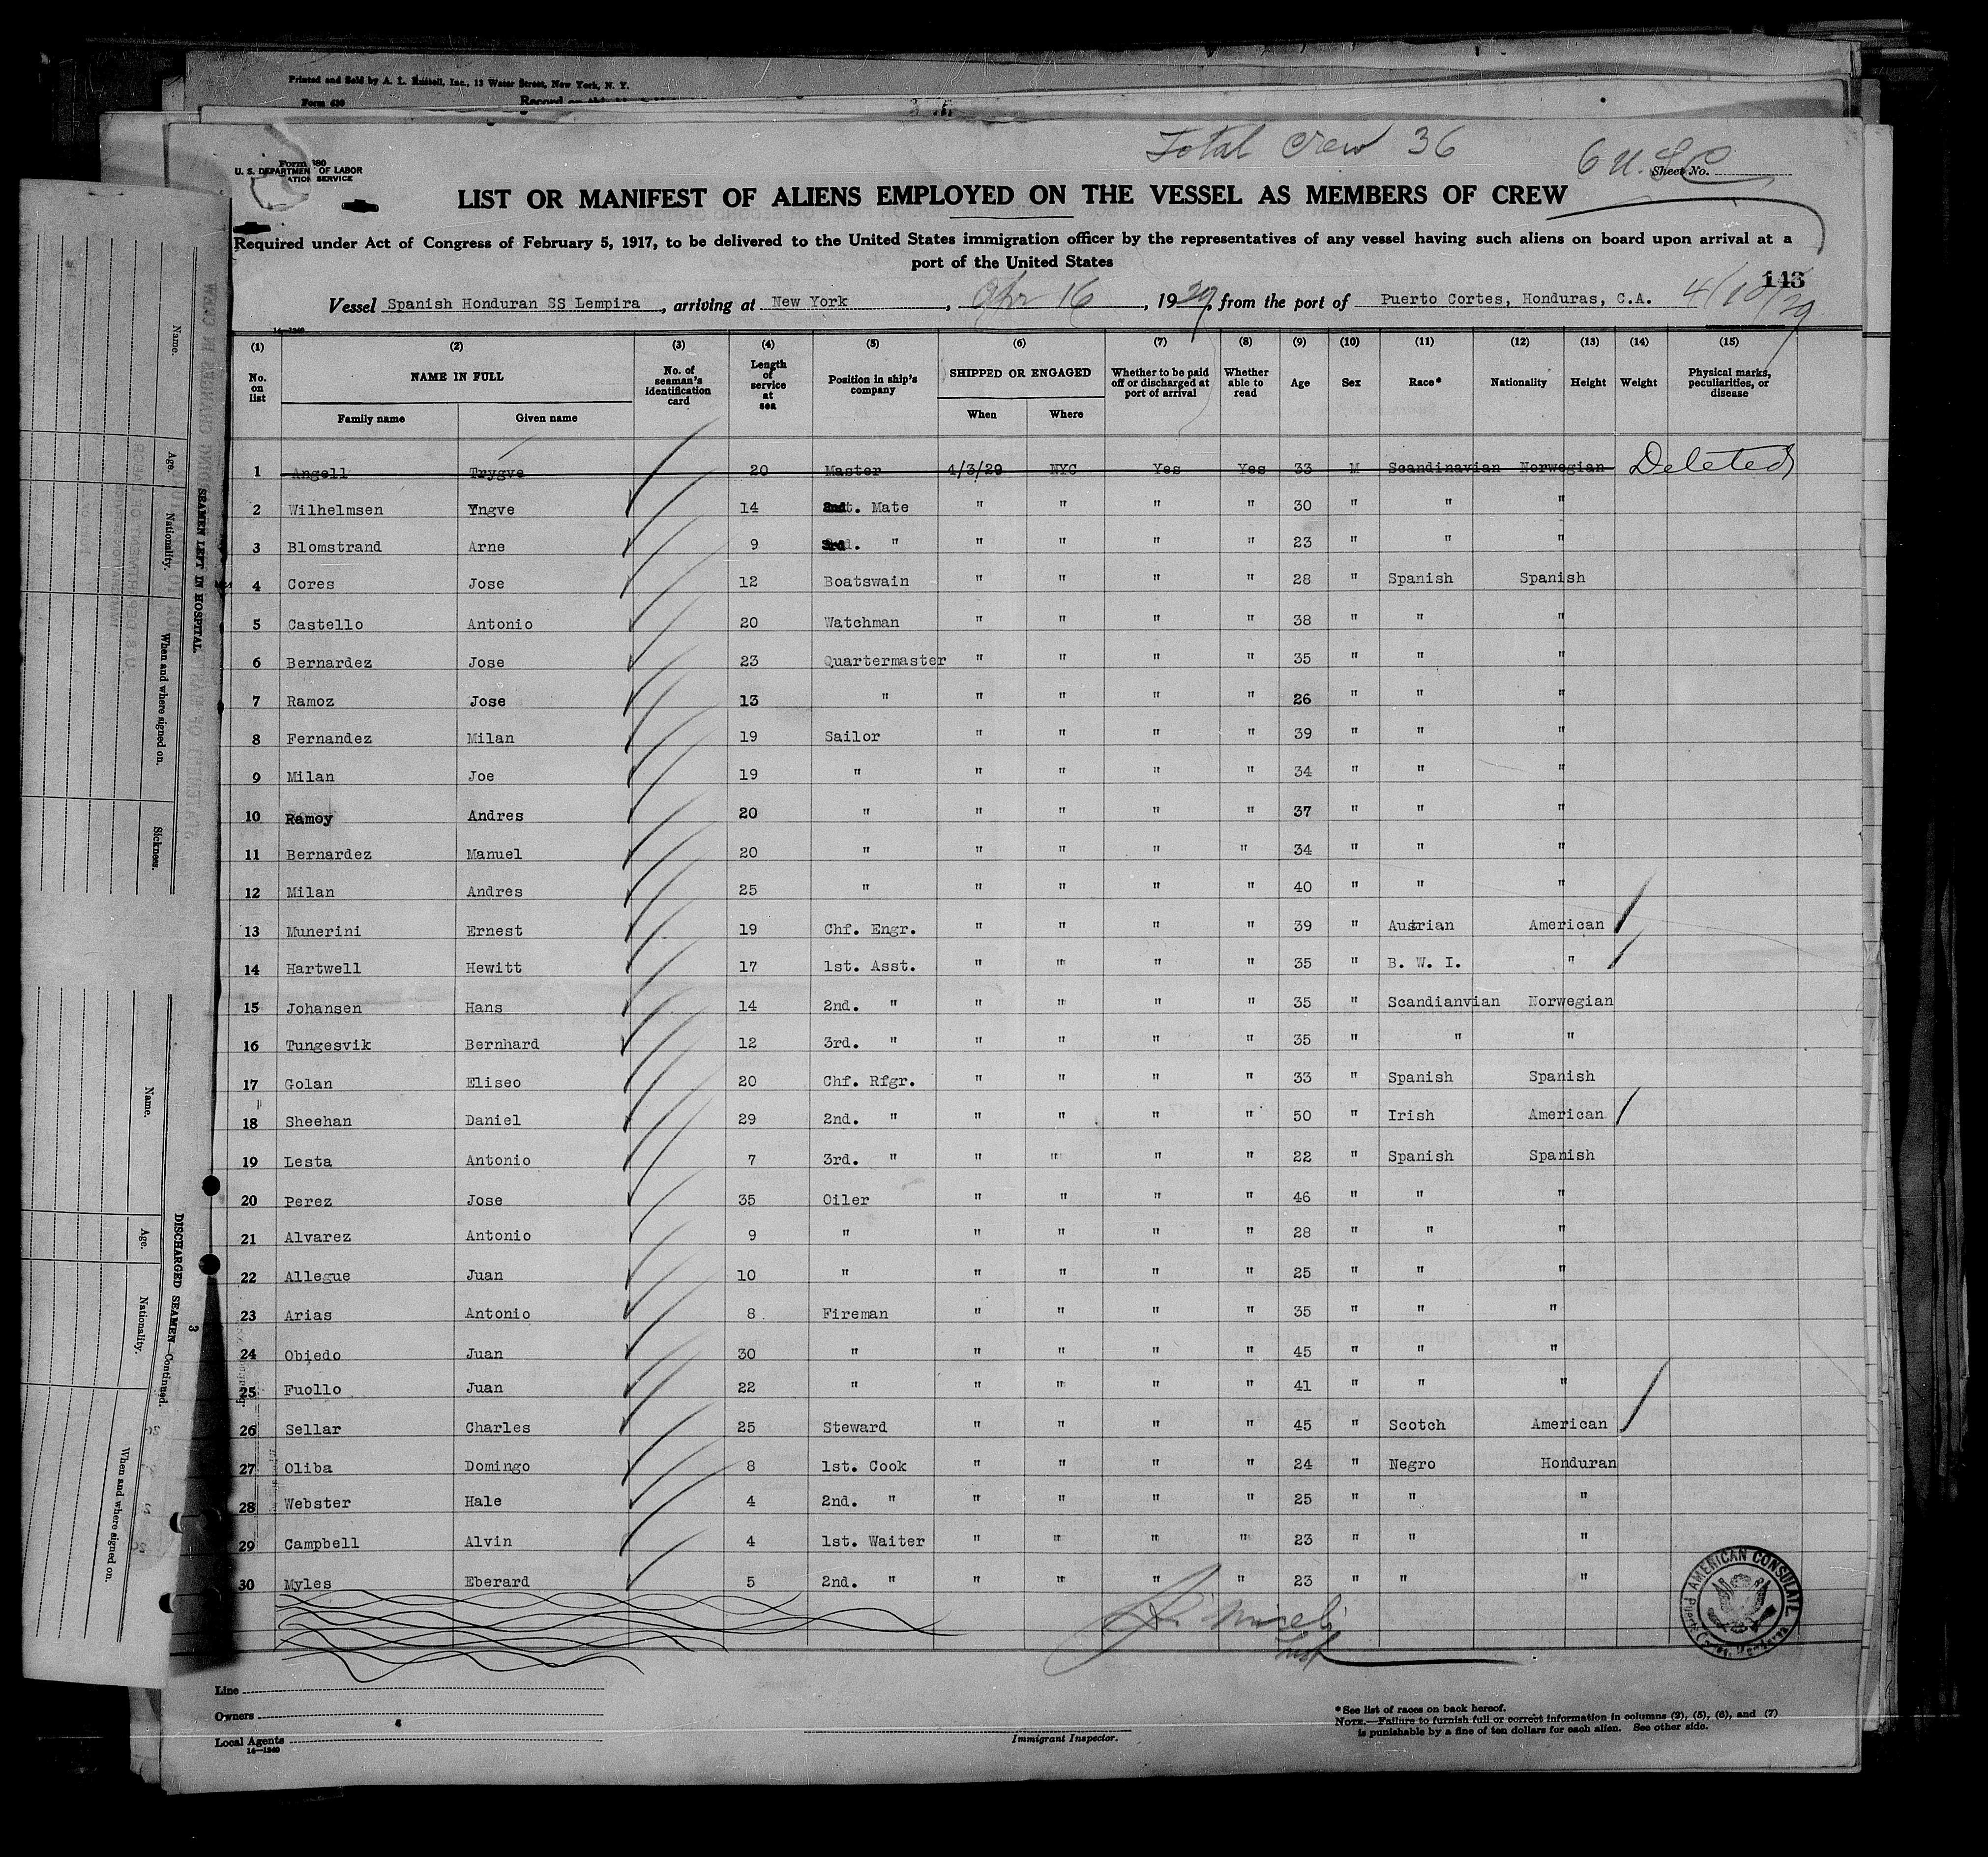 Printed and Sold by A. L. Russell, Inc., 13 Water Street, New York, N. Y.
Form 630
Total Crew 36
6 U.S.C
Form 680
U. S. DEPARTMENT OF LABOR
ATION SERVICE
Sheet No.
LIST OR MANIFEST OF ALIENS EMPLOYED ON THE VESSEL AS MEMBERS OF CREW
Required under Act of Congress of February 5, 1917, to be delivered to the United States immigration officer by the representatives of any vessel having such aliens on board upon arrival at a
port of the United States
143
Vessel Spanish Honduran SS Lempira, arriving at New York, Apr 16, 1929, from the port of Puerto Cortes, Honduras, C.A. 4/10/29
14—1240
(1) (2) (3) (4) (5) (6) (7) (8) (9) (10) (11) (12) (13) (14) (15)
No. on list NAME IN FULL Family name Given name No. of seaman's identification card Length of service at sea Position in ship's company SHIPPED OR ENGAGED When Where Whether to be paid off or discharged at port of arrival Whether able to read Age Sex Race* Nationality Height Weight Physical marks, peculiarities, or disease
1 Angell Trygve 20 Master 4/3/29 NYC Yes Yes 33 M Scandinavian Norwegian Deleted
2 Wilhelmsen Yngve 14 2nd. Mate " " " " 30 " " "
3 Blomstrand Arne 9 3rd. " " " " " 23 " " "
4 Cores Jose 12 Boatswain " " " " 28 " Spanish Spanish
5 Castello Antonio 20 Watchman " " " " 38 " " "
6 Bernardez Jose 23 Quartermaster " " " " 35 " " "
7 Ramoz Jose 13 " " " " " 26 " " "
8 Fernandez Milan 19 Sailor " " " " 39 " " "
9 Milan Joe 19 " " " " " 34 " " "
10 Ramoy Andres 20 " " " " " 37 " " "
11 Bernardez Manuel 20 " " " " " 34 " " "
12 Milan Andres 25 " " " " " 40 " " "
13 Munerini Ernest 19 Chf. Engr. " " " " 39 " Austrian American
14 Hartwell Hewitt 17 1st. Asst. " " " " 35 " B. W. I. "
15 Johansen Hans 14 2nd. " " " " " 35 " Scandianvian Norwegian
16 Tungesvik Bernhard 12 3rd. " " " " " 35 " " "
17 Golan Eliseo 20 Chf. Rfgr. " " " " 33 " Spanish Spanish
18 Sheehan Daniel 29 2nd. " " " " " 50 " Irish American
19 Lesta Antonio 7 3rd. " " " " " 22 " Spanish Spanish
20 Perez Jose 35 Oiler " " " " 46 " " "
21 Alvarez Antonio 9 " " " " " 28 " " "
22 Allegue Juan 10 " " " " " 25 " " "
23 Arias Antonio 8 Fireman " " " " 35 " " "
24 Objedo Juan 30 " " " " " 45 " " "
25 Fuollo Juan 22 " " " " " 41 " " "
26 Sellar Charles 25 Steward " " " " 45 " Scotch American
27 Oliba Domingo 8 1st. Cook " " " " 24 " Negro Honduran
28 Webster Hale 4 2nd. " " " " " 25 " " "
29 Campbell Alvin 4 1st. Waiter " " " " 23 " " "
30 Myles Eberard 5 2nd. " " " " " 23 " " "
AMERICAN CONSULATE
Puerto Cortes, Honduras
Line
Owners
Local Agents
14—1240
Immigrant Inspector.
*See list of races on back hereof.
NOTE.—Failure to furnish full or correct information in columns (2), (5), (6), and (7)
is punishable by a fine of ten dollars for each alien. See other side.
SEAMEN LEFT IN HOSPITAL
Name. Age. Nationality. When and where signed on. Sickness.
DISCHARGED SEAMEN—Continued.
Name. Age. Nationality. When and where signed on.
3